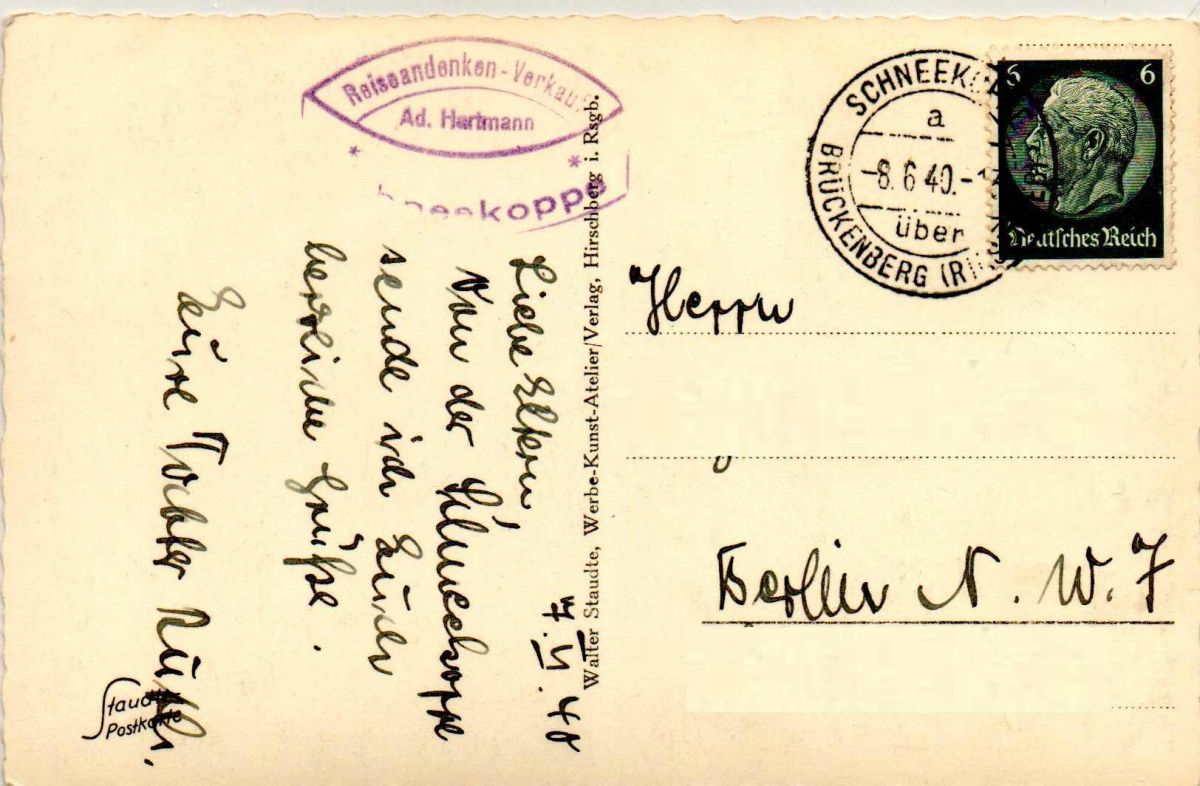 Reiseandenken-Verkauf
Ad. Hartmann
* *
neekoppe
SCHNEEK
a
-8.6.40.-1
über
BRÜCKENBERG (RI
6 6
Deutsches Reich
7.VI.40
Liebe Eltern,
Von der Schneekoppe
sende ich Euch
herzliche Grüße.
Eure Tochter Ruth.
Staudte
Postkarte
Walter Staudte, Werbe-Kunst-Atelier/Verlag, Hirschberg i. Rsgb.
Herrn
Berlin N. W. 7